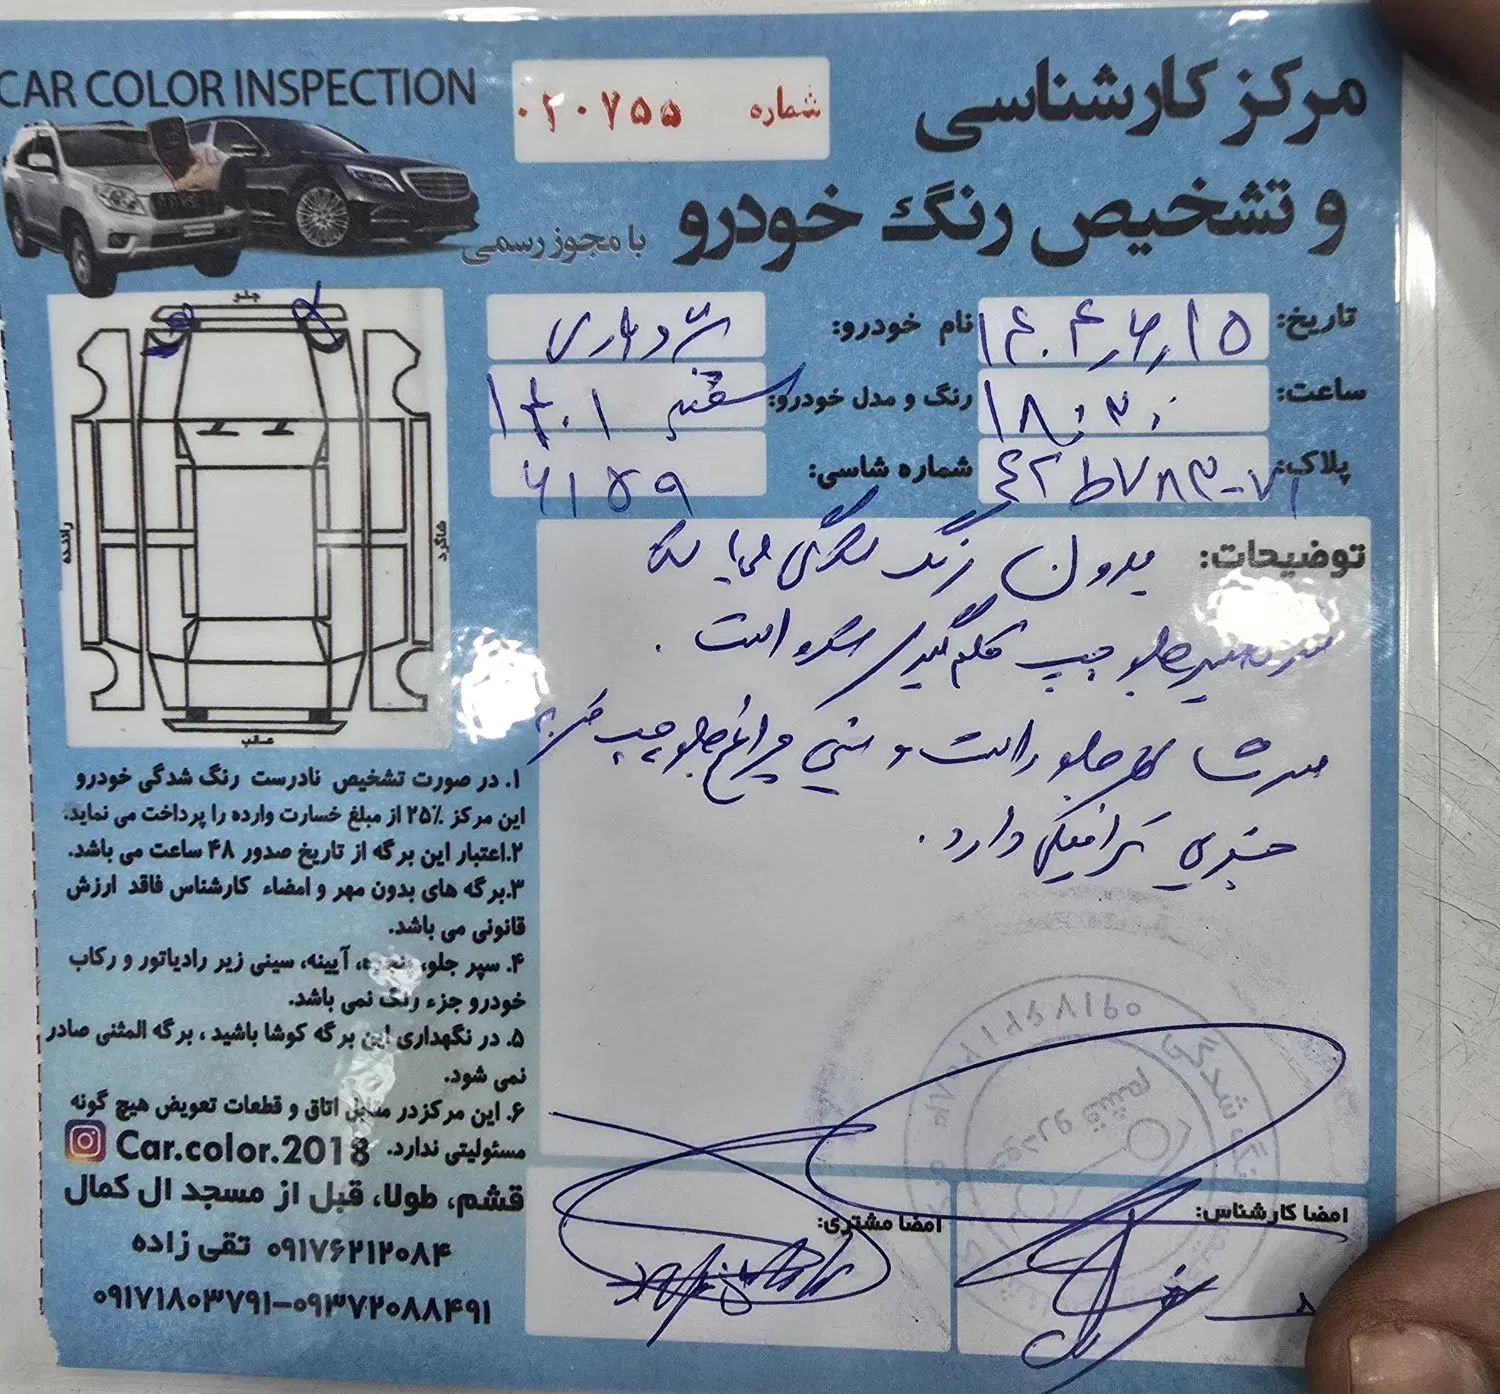 CAR COLOR INSPECTION
شماره ۰۲۰۷۵۵
مرکز کارشناسی
و تشخیص رنگ خودرو
با مجوز رسمی
تاریخ: ۱۴۰۴,۶,۱۵
نام خودرو:
ساعت: ۱۸:۳۰
رنگ و مدل خودرو: سفید ۱۴۰۱
پلاک: ۴۲ ط ۷۸۳-۷۱
شماره شاسی: ۶۱۵۹
جلو
راننده
شاگرد
عقب
توضیحات: بدون رنگ شدگی می باشد
جلو چپ قلم گیری شده است.
جلو راست و سینی چراغ جلو چپ ضربه
ترافیکی دارد.
۱. در صورت تشخیص نادرست رنگ شدگی خودرو
این مرکز ۲۵٪ از مبلغ خسارت وارده را پرداخت می نماید.
۲.اعتبار این برگه از تاریخ صدور ۴۸ ساعت می باشد.
۳.برگه های بدون مهر و امضاء کارشناس فاقد ارزش
قانونی می باشد.
۴. سپر جلو، پنجره، آیینه، سینی زیر رادیاتور و رکاب
خودرو جزء رنگ نمی باشد.
۵. در نگهداری این برگه کوشا باشید ، برگه المثنی صادر
نمی شود.
۶. این مرکزدر مقابل اتاق و قطعات تعویض هیچ گونه
مسئولیتی ندارد.
Car.color.2018
قشم، طولا، قبل از مسجد ال کمال
۰۹۱۷۶۲۱۲۰۸۴ تقی زاده
۰۹۱۷۱۸۰۳۷۹۱-۰۹۳۷۲۰۸۸۴۹۱
امضا مشتری:
امضا کارشناس: